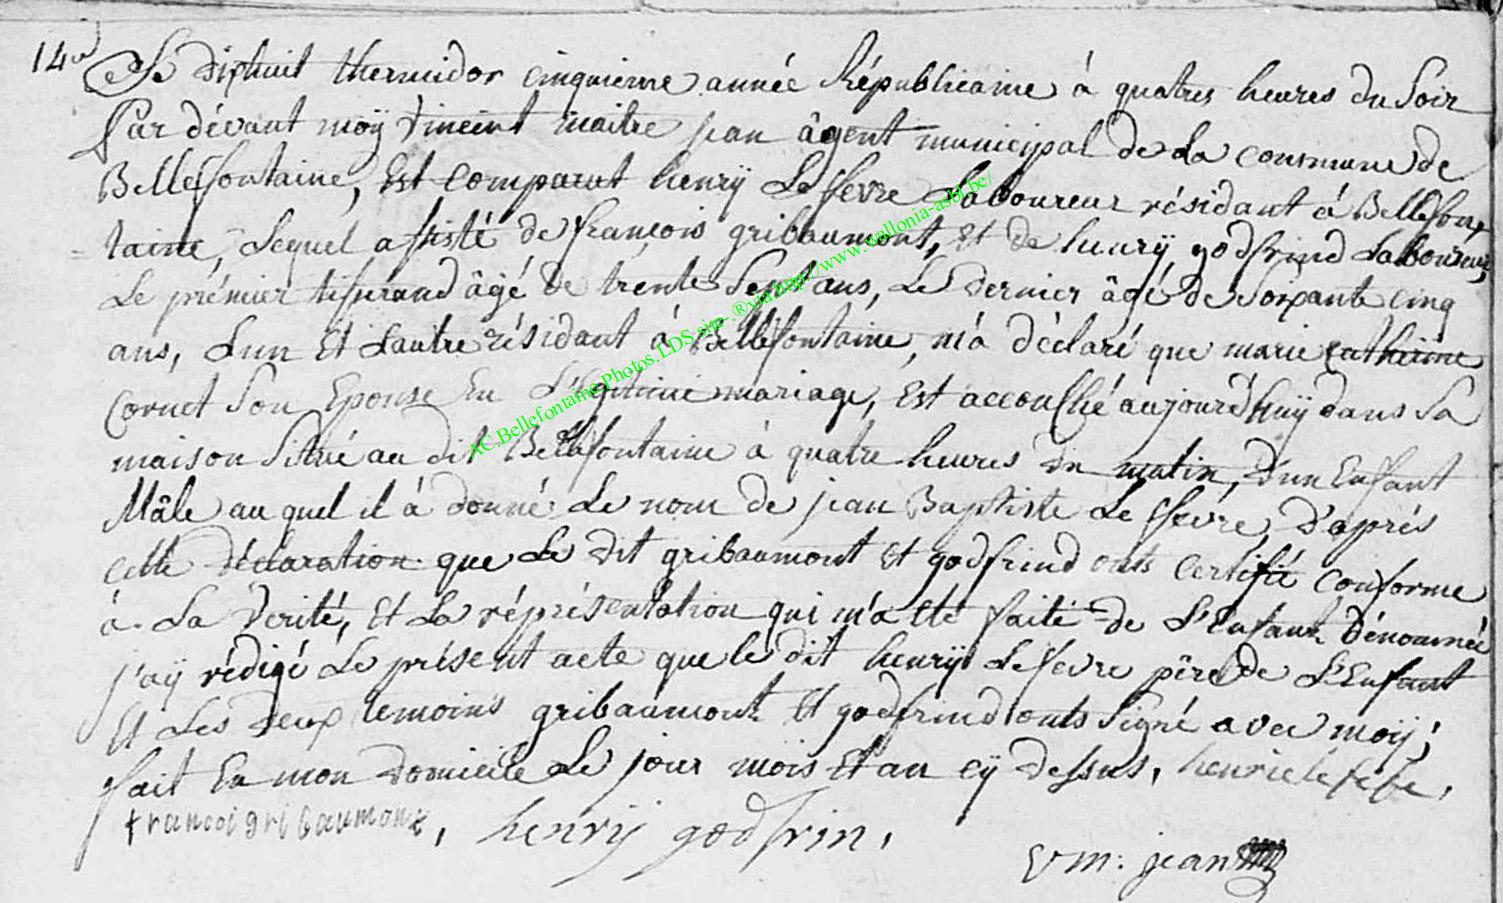 14e
Le dixhuit thermidor cinquieme année Républicaine à quatres heures du Soir
Par dévant moÿ Vincent maitre jean âgent municipal de La commune de
Bellefontaine, Est comparut henrÿ Le fevre Laboureur résidant à Bellefon,
= taine, Lequel assisté de françois gribaumont, Et de henrÿ godfrind Laboureur,
Le prémier tisserand âgé de trente Sept ans, Le dernier âgé de Soixante cinq
ans, Lun Et Lautre résidant à Bellefontaine, m'à dèclaré que marie catherine
Cornet Son Epouse En L'égitime mariage, Est accouché aujourd'huÿ dans Sa
maison Situé au dit Bellefontaine à quatre heures du matin, d'un Enfant
Mâle au quel il à donné Le nom de jean Baptiste Le ffevre, D'aprés
cette déclaration que Le dit gribaumont Et godfrind onts certifié conforme
à La Verité, Et La répréséntation qui m'a Eté faite de L'Enfant dénommée
j'aÿ rédigé Le présent acte que le dit henrÿ Le fevre pêre de L'Enfant
Et Les deux temoins gribaumont Et godfrind onts Signé avec moÿ;
fait En mon domicile Le jour mois Et an cÿ dessus, henri le febe,
francoi gribaumont, henrÿ godfrin,
V m: jean
AC.Bellefontaine.Photos.LDS site-.®via http://www.wallonia-asbl.be/